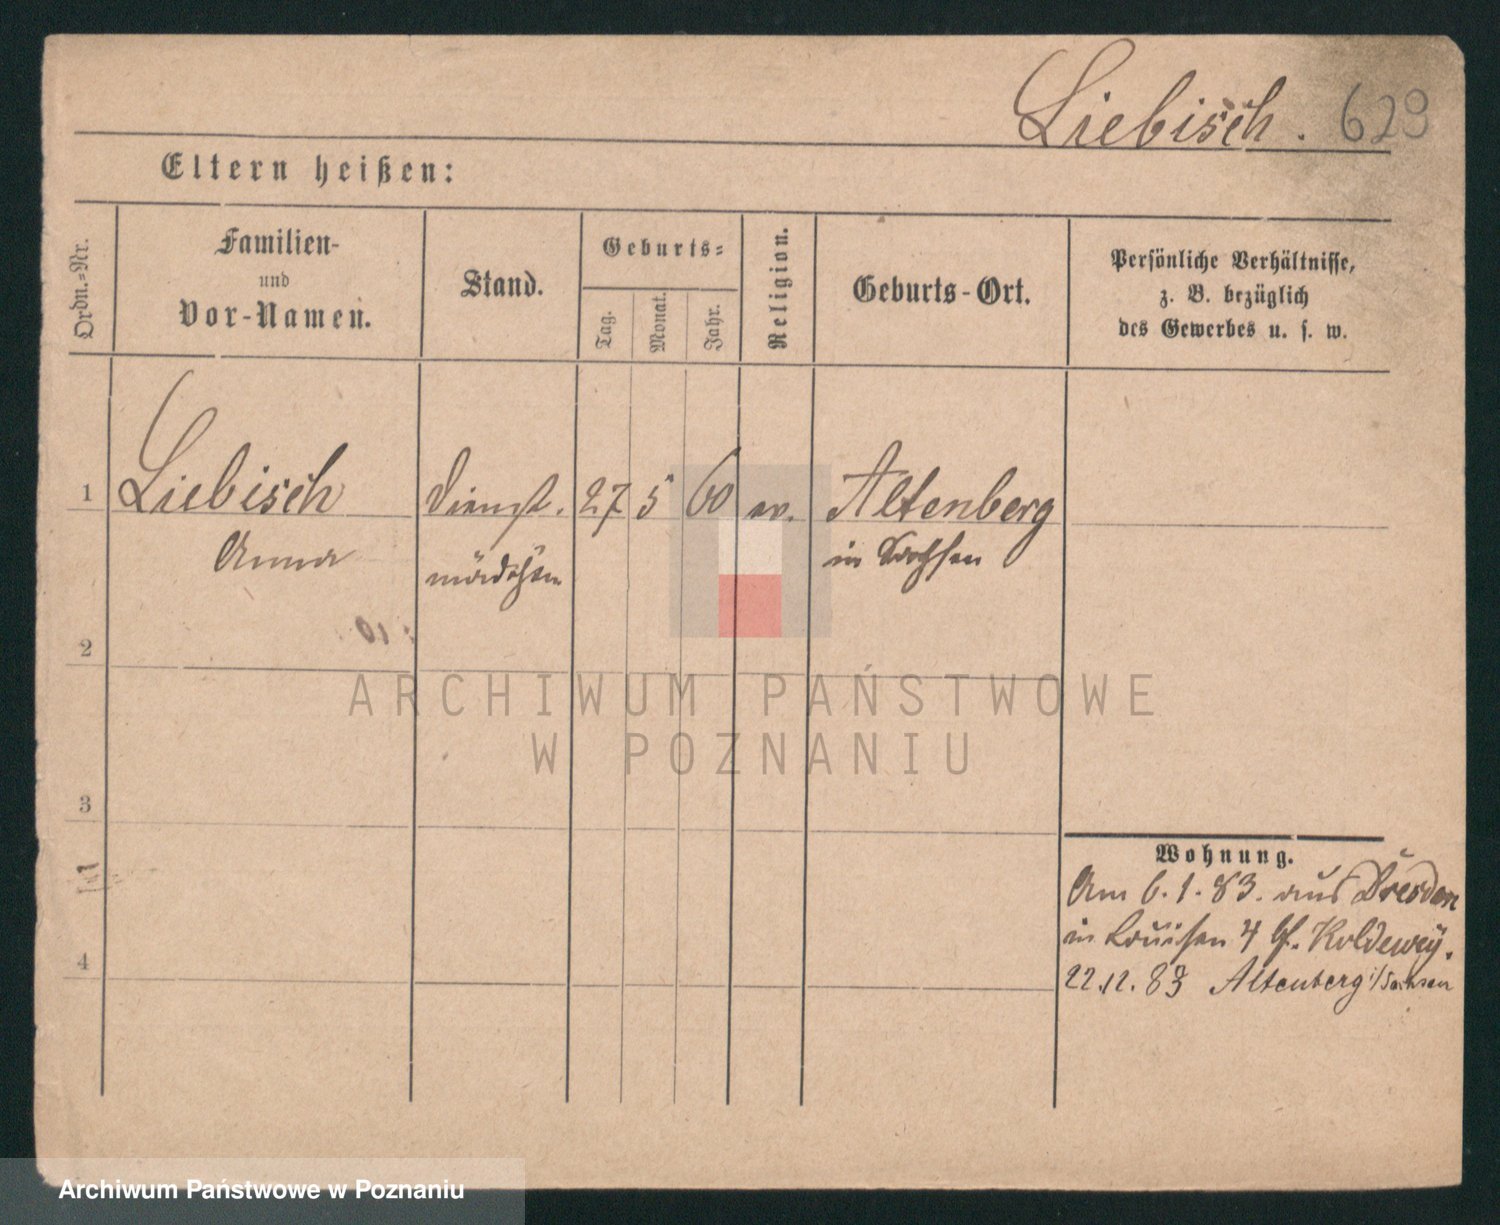 Liebisch. 629
Eltern heißen:
Ordn.-Nr.
Familien-
und
Vor-Namen.
Stand.
Geburts-
Tag.
Monat.
Jahr.
Religion.
Geburts-Ort.
Persönliche Verhältnisse,
z. B. bezüglich
des Gewerbes u. s. w.
1 Liebisch Dienst. 27 5 60 ev. Altenberg
Anna mädchen in Sachsen
2
3
4
Wohnung.
Am 6.1.83. aus Dresden
in Louisen 4 bf. Koldewey.
22.12.83 Altenberg i/Sachsen
ARCHIWUM PAŃSTWOWE
W POZNANIU
Archiwum Państwowe w Poznaniu